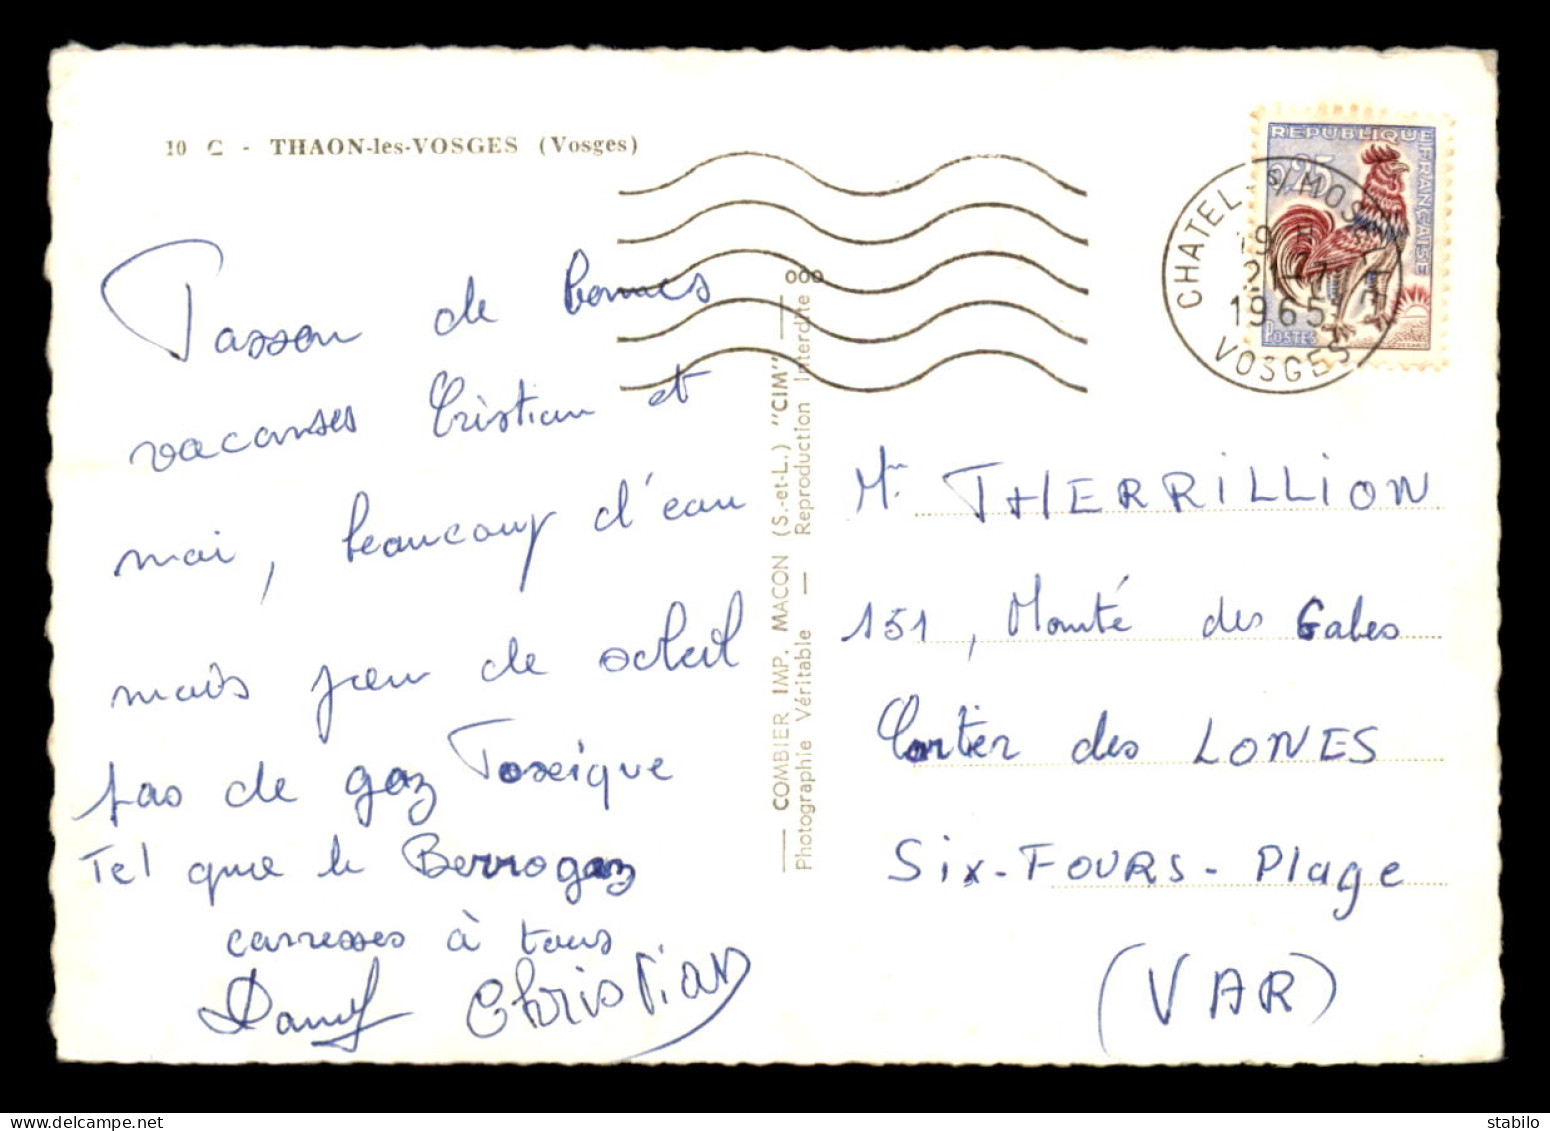 10 C - THAON-les-VOSGES (Vosges)
Passon de bonnes
vacanses Cristian et
moi, beaucoup d'eau
mais peu de soleil
pas de gaz Toxique
Tel que le Berrogaz
carresses à tous
Dany Christian
COMBIER IMP. MACON (S.-et-L.) "CIM"
Photographie Véritable — Reproduction Interdite
REPUBLIQUE FRANÇAISE
0,25
POSTES
CHATEL-S/MOSELLE
19 H
21-7
1965
VOSGES
Mr THERRILLION
151, Monté des Gabes
Cartier des LONES
Six-FOURS-Plage
(VAR)
www.delcampe.net
stanibilo